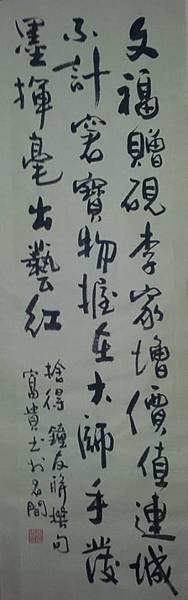 文福贈硯李家增價值連城
不計窘寶物握在大師手潑
墨揮毫出藝紅
捨得鐘友聯撰句
富貴士於名間